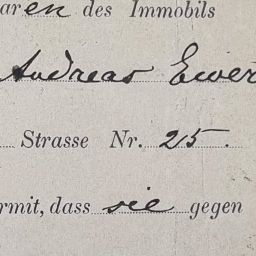 aren des Immobils
Andreas Ewer
Strasse Nr. 25.
rmit, dass sie gegen